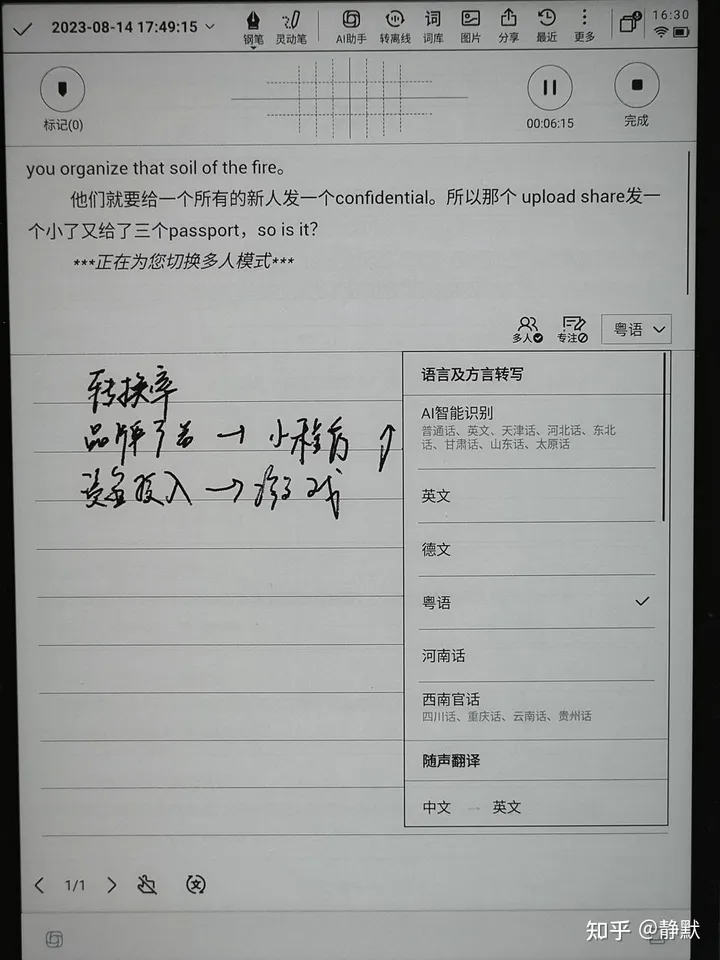 2023-08-14 17:49:15
钢笔 灵动笔 AI助手 转离线 词库 图片 分享 最近 更多
16:30
标记(0)
00:06:15
完成
you organize that soil of the fire。
他们就要给一个所有的新人发一个confidential。所以那个 upload share发一
个小了又给了三个passport，so is it?
***正在为您切换多人模式***
多人 专注 粤语
转换率
品牌广告 → 小程序 ↑
资金投入 → 游戏
语言及方言转写
AI智能识别
普通话、英文、天津话、河北话、东北
话、甘肃话、山东话、太原话
英文
德文
粤语
河南话
西南官话
四川话、重庆话、云南话、贵州话
随声翻译
中文 → 英文
1/1
文
知乎 @静默